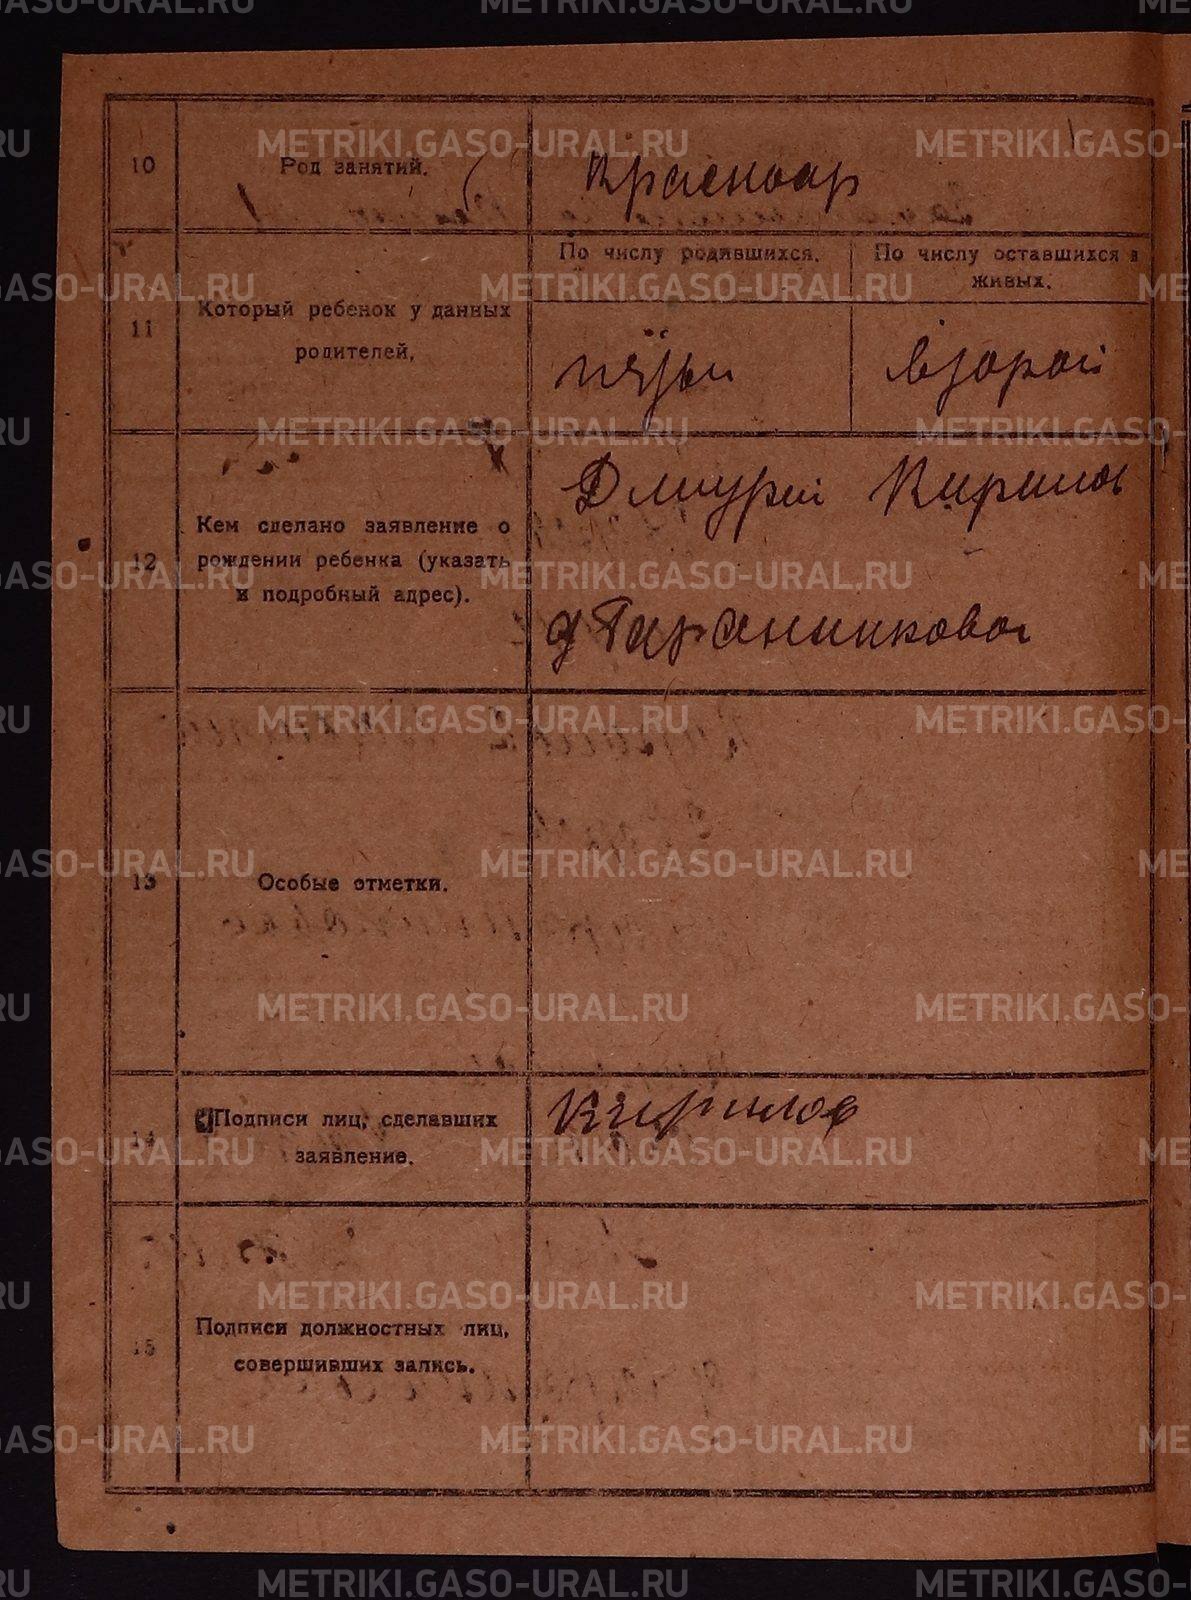 10
Род занятий.
Красноар
11
Который ребенок у данных
родителей,
По числу родившихся.
По числу оставшихся в
живых.
пяты
второй
12
Кем сделано заявление о
рождении ребенка (указать
и подробный адрес).
Дмитрий Кирилов
13
Особые отметки.
14
Подписи лиц, сделавших
заявление.
Кирилов
15
Подписи должностных лиц,
совершивших запись.
METRIKI.GASO-URAL.RU